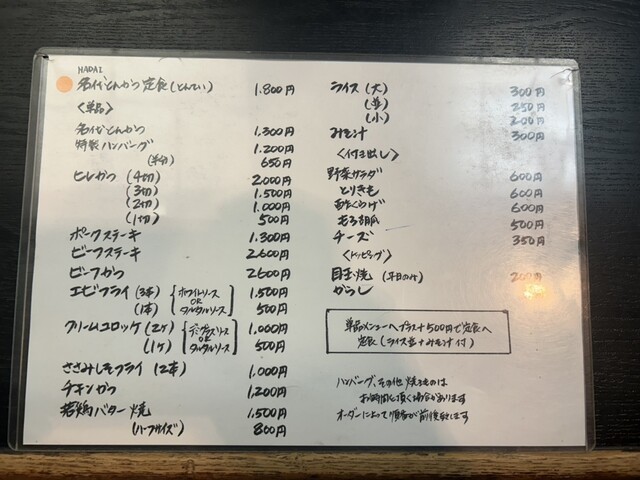 NADAI
名代とんかつ定食(とんてい) 1.800円
〈単品〉
名代とんかつ 1.300円
特製ハンバーグ 1.200円
(半分) 650円
ヒレかつ (4切) 2000円
(3切) 1.500円
(2切) 1.000円
(1切) 500円
ポークステーキ 1.300円
ビーフステーキ 2600円
ビーフかつ 2600円
エビフライ (3本) ホワイトソース OR タルタルソース 1.500円
(1本) 500円
クリームコロッケ (2ケ) デミグラスソース OR タルタルソース 1.000円
(1ケ) 500円
ささみしそフライ (2本) 1.000円
チキンかつ 1,200円
若鶏バター焼 1.500円
(ハーフサイズ) 800円
ライス (大) 300円
(並) 250円
(小) 200円
みそ汁 300円
〈付き出し〉
野菜サラダ 600円
とりきも 600円
600円
もろ胡瓜 500円
チーズ 350円
〈トッピング〉
目玉焼 (平日のみ) 200円
からし
単品メニューへプラス+500円で定食へ
定食(ライス並+みそ汁付)
ハンバーグ、その他焼きものは
お時間を頂く場合があります
オーダーによって順番が前後します